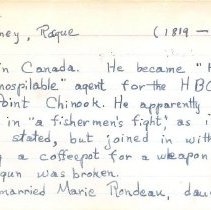 ney, Roque (1819 -
in Canada. He became "
nospilable" agent for the HBC
oint Chinook. He apparently
in "a fishermen's fight", as
stated, but joined in with
g a coffeepot for a weapon
gun was broken.
married Marie Rondeau, dau